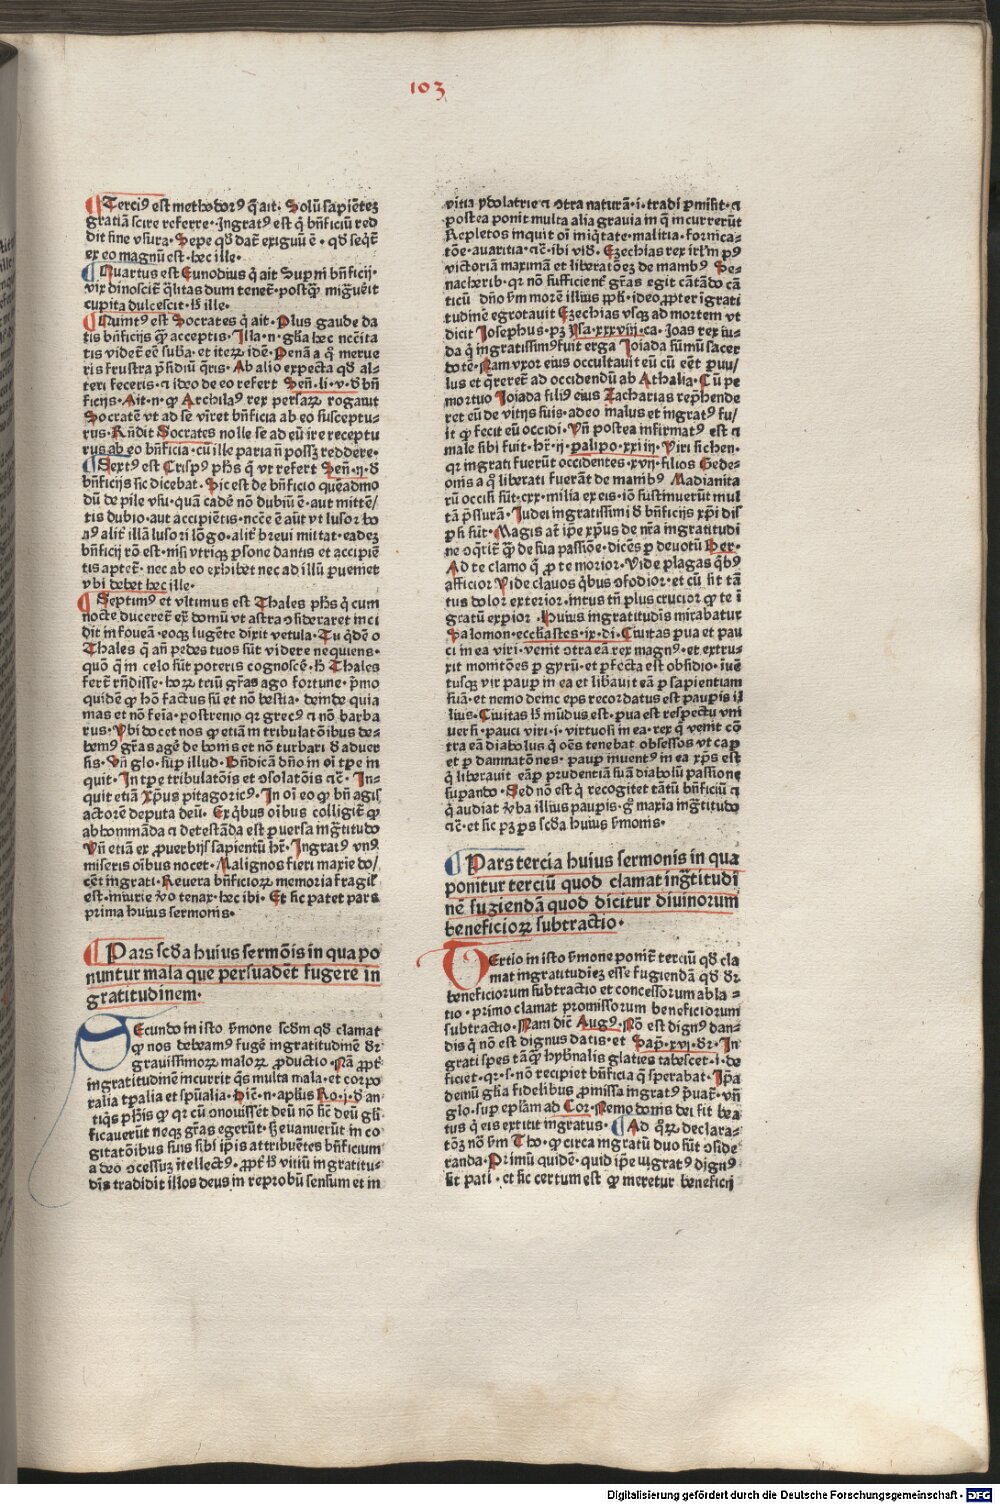 103
¶ Terciꝰ est methodorꝰ q̄ ait. Solū sapiētez
gratiā scire referre. Ingratꝰ est q̇ bn̄ficiū red
dit sine vsura. Sepe qd̓ dat̄ exiguū ē. qd̓ seq̄t̄
ex eo magnū est. hec ille.
¶ Quartus est Eunodius q̇ ait Supni bn̄ficij.
vix dinoscit̄ q̄litas dum tenet̄. postq̄ꝫ migͣuēit
cupita dulcescit. h̓ ille.
¶ Quintꝰ est Socrates q̇ ait. Plus gaude da
tis bn̄ficijs q̄ꝫ acceptis. Illa. n. gl̄ia hec nc̄cita
tis videt̄ eē suba. et iterꝝ idē. Penā a q̇ merue
ris frustra p̄fidiū q̄ris. Ab alio expecta qd̓ al-
teri feceris. a ideo de eo refert Sen̄. li. v. d̓ bn̄
ficijs. Ait. n. ꝙ Archilaꝰ rex persaꝝ rogauit
Socratē vt ad se vīret bn̄ficia ab eo susceptu-
rus. Rn̄dit Socrates nolle se ad eū ire receptu
rus ab eo bn̄ficia. cū ille paria n̄ possꝫ reddere.
¶ Sextꝰ est Crispꝰ ph̄s q̇ vt refert Sen̄. ij. d̓
bn̄ficijs sic dicebat. Sic est de bn̄ficio quēadmo
dū de pile vsu. quā cadē nō dubiū ē. aut mittē/
tis dubio. aut accipiētis. nc̄ce ē aūt vt lusor bo
nꝰ alit̄ illā lusori lōgo. alit̄ breui mittat. eadeꝫ
bn̄ficij rō est. nisi vtriqꝫ ꝑsone dantis et accipiē
tis aptet̄. nec ab eo exhibet nec ad illū ꝑuemet
vbi debet hec ille.
¶ Septimꝰ et vltimus est Thales ph̄s q̇ cum
nocte duceret̄ ex̄ domū vt astra ꝯsideraret inci
dit in foueā. eoqꝫ lugēte dixit vetula. Tu q̇dē o
Thales q̇ an̄ pedes tuos sūt videre nequiens.
quō q̄ in celo sūt poteris cognoscē. h̓ Thales
fert̄ rn̄disse. hoꝝ triū gr̄as ago fortune. p̄mo
quidē ꝙ hō factus sū et nō bestia. deinde quia
mas et nō fēia. postremo qr grecꝰ a nō barba
rus. Vbi docet nos ꝙ etiā in tribulatōibus de-
bemꝰ gr̄as agē de bonis et nō turbari d̓ aduer
sis. Vn̄ glo. sup̄ illud. Bn̄dicā dn̄o in oī tꝑe in
quit. In tꝑe tribulatōis et ꝯsolatōis ac̄. In-
quit etiā Xp̄us pitagoricꝰ. In oī eo ꝙ bn̄ agis
actorē deputa deū. Ex q̇bus oībus colligit̄ ꝙ
abhomināda a detestāda est ꝑuersa ingͣtitudo
Vn̄ etiā ex ꝓuerbijs sapientū hr̄. Ingratꝰ vnꝰ
miseris oībus nocet. Malignos fieri maxīe do/
cēt ingrati. Reuera bn̄ficioꝝ memoria fragil̓
est. iniurie v̄o tenax. hec ibi. Et sic patet pars
prima huius sermonis.
¶ Pars scd̓a huius sermōis in qua po
nuntur mala que persuadēt fugere in
gratitudinem.
Secundo in isto s̓mone scd̓m qd̓ clamat
ꝙ nos debeamꝰ fugē ingratitudinē dr̄
grauissimoꝝ maloꝝ ꝓductio. Nā ꝓpt̓
ingratitudinē incurrit q̄s multa mala. et corpo
ralia tꝑalia et spūalia. Dic̄. n. apl̄us Ro. j. d̓ an-
tiq̇s ph̄is ꝙ qr cū ꝯnouissēt deū nō sic̄ deū gl̄i
ficauerūt neqꝫ gr̄as egerūt. ꝫ euanuerūt in co
gitatōibus suis sibi ip̄is attribuētes bn̄ficium
a deo ꝯcessuꝫ ītellectꝰ. ꝓpt̓ h̓ vitiū ingratitu-
dīs tradidit illos deus in reprobū sensum et in
vitia ydolatrie a ꝯtra naturā. i. tradi ꝑmisit. a
postea ponit multa alia grauia in q̄ incurrerūt
Repletos inquit oī iniq̇tate. malitia. fornica-
tōe. auaritia. ac̄. ibi vid̓. Ezechias rex irl̄m pꝰ
victoriā maximā et liberatōeꝫ de manibꝰ Se-
nacherib. qr nō sufficient̓ gr̄as egit cātādo cā
ticū dn̄o s̓m morē illius ppl̓i. ideo ꝓpter īgrati
tudinē egrotauit Ezechias vsqꝫ ad mortem vt
dicit Josephus. pꝫ Jsa. xxxviij. ca. Joas rex iu-
da q̇ ingratissimꝰ fuit erga Joiada sūmū sacer
dotē. Nam vxor eius occultauit eū cū eēt ꝑuu/
lus et q̄reret̄ ad occidendū ab Athalia. Cū ꝑe
mortuo Joiada filiꝰ eius Zacharias rep̄hende
ret eū de vitijs suis. adeo malus et ingratꝰ fu/
it ꝙ fecit eū occidi. Vn̄ postea infirmatꝰ est a
male sibi fuit. hr̄. ij. palipo. xxiiij. Viri sichen.
qr ingrati fuerūt occidentes. xvij. filios Gede-
onis a q̇ liberati fuerāt de manibꝰ Madianita
rū occisi sūt. cxx. milia ex eis. iō sustinuerūt mul
tā p̄ssurā. Judei ingratissimi d̓ bn̄ficijs xp̄i dis
ꝑsi sūt. Magis at̄ ip̄e xp̄us de nr̄a ingratitudi
ne ꝯq̄rit̄ q̄ꝫ de sua passiōe. dicēs ꝑ deuotū Ber.
Ad te clamo q̇ ꝓ te morior. Vide plagas q̇bꝰ
afficior Vide clauos q̇bus ꝯfodior. et cū sit tā
tus dolor exterior. intus tn̄ plus crucior ꝙ te ī
gratū exꝑior. Huius ingratitudinis mirabatur
Salomon. ecclīastes. ix. di. Ciuitas ꝑua et pau
ci in ea viri. venit ꝯtra eā rex magnꝰ. et extru-
xit monitōes ꝑ gyrū. et ꝑfecta est obsidio. iuē
tusqꝫ vir pauꝑ in ea et libauit eā ꝑ sapientiam
suā. et nemo deinceps recordatus est pauꝑis il
lius. Ciuitas h̓ mūdus est. ꝑua est respectu vni
uersi. pauci viri. i. virtuosi in ea. rex q̇ venit cō
tra eā diabolus q̇ oēs tenebat obsessos vt caꝑ
et ꝑ damnatōnes. pauꝑ inuentꝰ in ea xp̄s est
q̇ liberauit eā ꝑ prudentiā suā diabolū passione
suꝑando. Sed nō est q̇ recogitet tātū bn̄ficiū a
q̇ audiat v̄ba illius pauꝑis. gͦ maxīa ingͣtitudo
ac̄. et sic pꝫ ꝑs scd̓a huius s̓monis.
¶ Pars tercia huius sermonis in qua
ponitur terciū quod clamat ingͣtitudi
nē fugiendā quod dicitur diuinorum
beneficioꝝ subtractio.
Tertio in isto s̓mone ponit̄ terciū qd̓ cla
mat ingratitudieꝫ esse fugiendā qd̓ dr̄
beneficiorum subtractio et concessorum abla-
tio. primo clamat promissorum beneficiorum
subtractio. Nam dic̄ Augꝰ. Nō est dignꝰ dan-
dis q̇ nō est dignus datis. et Sap̄. xvj. dr̄. In
grati spes tāꝙ hybn̄alis glaties tabescet. i. de
ficiet. qr. s. nō recipiet bn̄ficia q̄ sperabat. Ip̄a
demū gl̄ia fidelibus ꝓmissa ingratꝰ p̄uat̄. vn̄
glo. suꝑ epl̄am ad Cor. Nemo donis dei fit bea
tus q̇ eis extitit ingratus. ¶ Ad q̇ꝝ declara-
tōꝫ nō s̓m Tho. ꝙ circa ingratū duo sūt ꝯside
randa. Primū quidē. quid ip̄e īgratꝰ dignꝰ
sit pati. et sic certum est ꝙ meretur beneficij
Digitalisierung gefördert durch die Deutsche Forschungsgemeinschaft - DFG